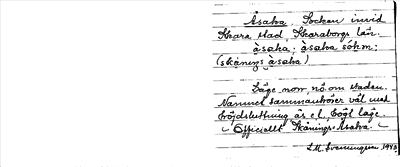 Åsaka, Socken invid
Skara stad, Skaraborgs län.
åsaka, åsaka sôhm;
(skånings åsaka)
Läge norr, nö om staden.
Namnet sammanhörer väl med
höjdsluttning ås el. högt läge.
- Officiellt Skånings-Åsaka. -